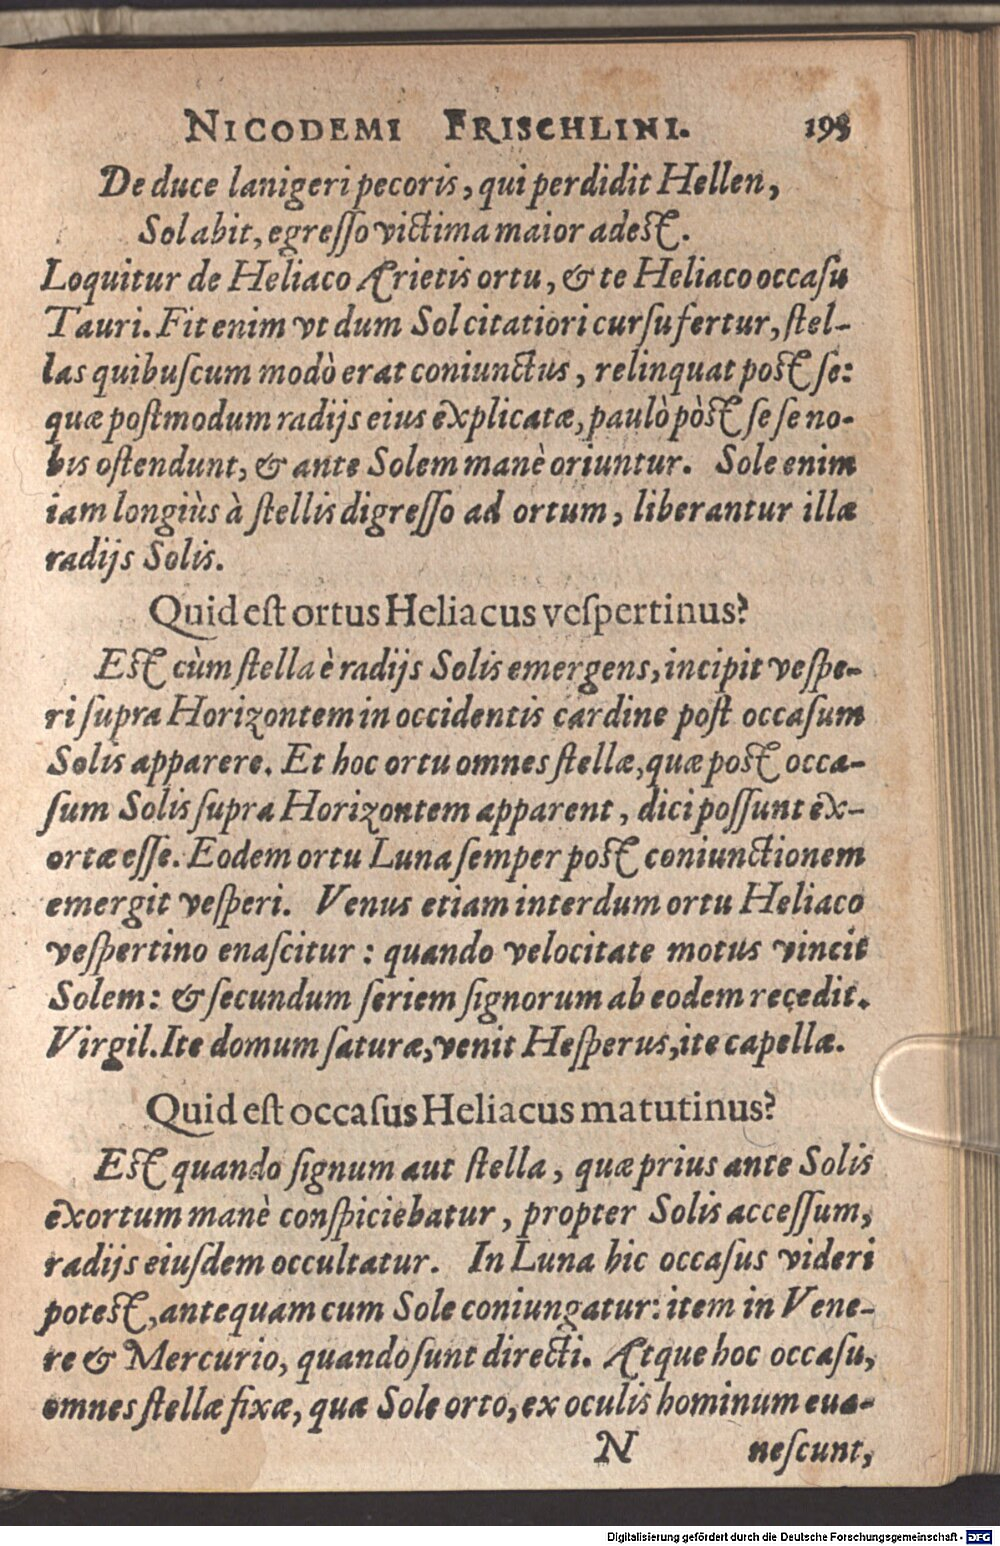 NICODEMI FRISCHLINI. 193
De duce lanigeri pecoris, qui perdidit Hellen,
Sol abit, egreſſo victima maior adest.
Loquitur de Heliaco Arietis ortu, & te Heliaco occaſu
Tauri. Fit enim vt dum Sol citatiori curſu fertur, ſtel-
las quibuſcum modò erat coniunctus, relinquat post ſe:
quæ poſtmodum radijs eius explicatæ, paulò pòst ſe ſe no-
bis oſtendunt, & ante Solem manè oriuntur. Sole enim
iam longiùs à ſtellis digreſſo ad ortum, liberantur illæ
radijs Solis.
Quid eſt ortus Heliacus veſpertinus?
Est cùm ſtella è radijs Solis emergens, incipit veſpe-
ri ſupra Horizontem in occidentis cardine poſt occaſum
Solis apparere. Et hoc ortu omnes ſtellæ, quæ post occa-
ſum Solis ſupra Horizontem apparent, dici poſſunt ex-
ortæ eſſe. Eodem ortu Luna ſemper post coniunctionem
emergit veſperi. Venus etiam interdum ortu Heliaco
veſpertino enaſcitur: quando velocitate motus vincit
Solem: & ſecundum ſeriem ſignorum ab eodem reçedit.
Virgil. Ite domum ſaturæ, venit Heſperus, ite capellæ.
Quid eſt occaſus Heliacus matutinus?
Est quando ſignum aut ſtella, quæ prius ante Solis
exortum manè conſpiciebatur, propter Solis acceſſum,
radijs eiuſdem occultatur. In Luna hic occaſus videri
potest, antequam cum Sole coniungatur: item in Vene-
re & Mercurio, quando ſunt directi. Atque hoc occaſu,
omnes ſtellæ fixæ, quæ Sole orto, ex oculis hominum eua-
N neſcunt,
Digitalisierung gefördert durch die Deutsche Forschungsgemeinschaft - DFG